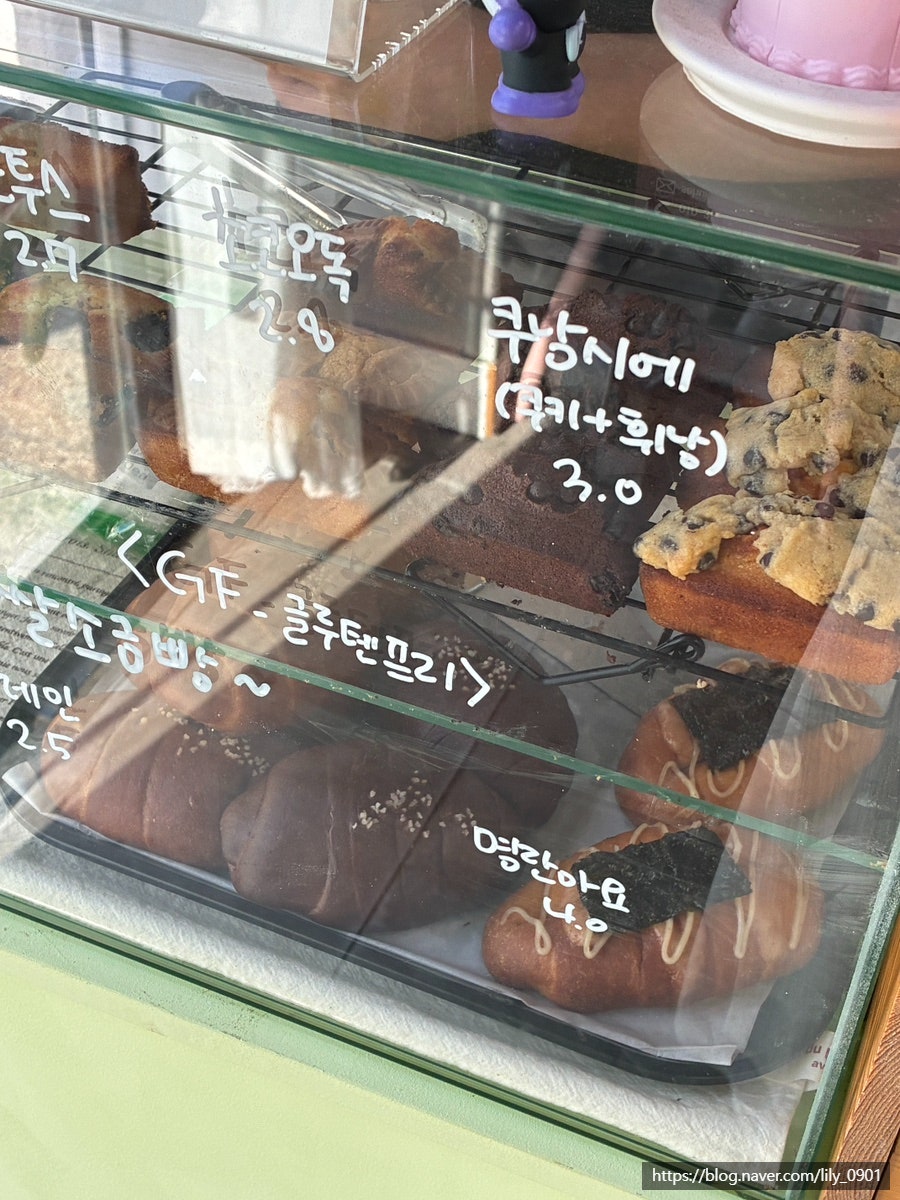 투스
2.7
2.8
쿠낭시에
(쿠키+휘낭)
3.0
<GF - 글루텐프리>
쌀소금빵~
레인
2.5
명란마요
4.0
https://blog.naver.com/lily_0901